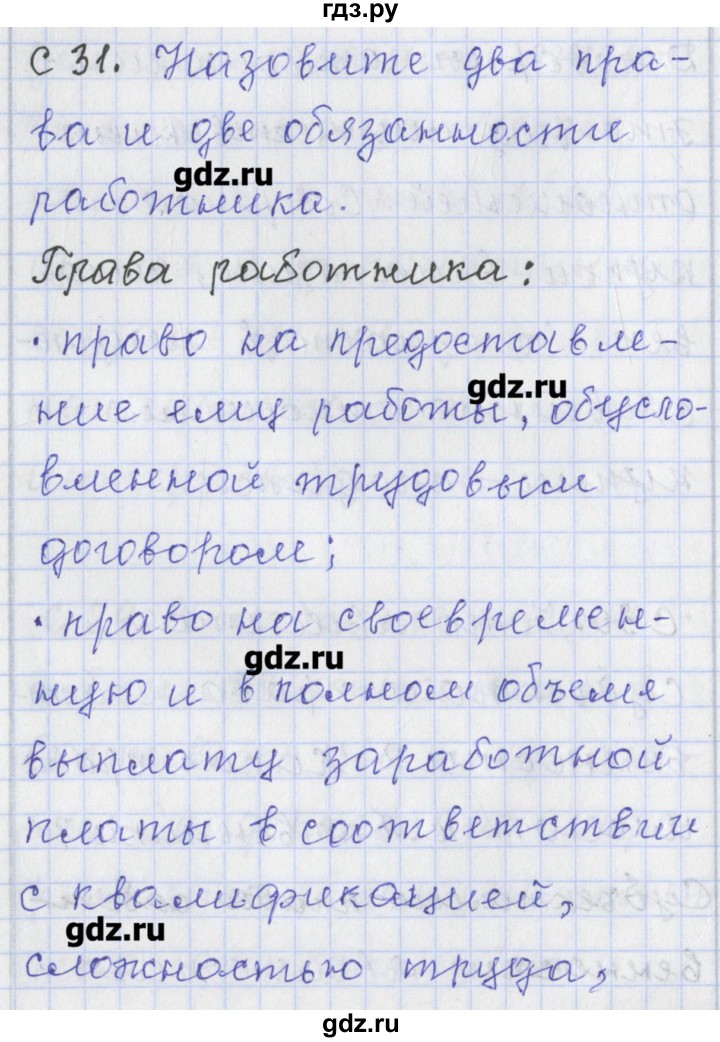 гдз.ру
С 31. Назовите два пра-
ва и две обязанности
gdz.ru
работника.
Права работника:
• право на предоставле-
gdz.ru
ние ему работы, обусло-
вленной трудовым
договором;
• право на своевремен-
gdz.ru
ную и в полном объеме
выплату заработной
платы в соответствии
с квалификацией,
gdz.ru
сложностью труда,
gdz.ru